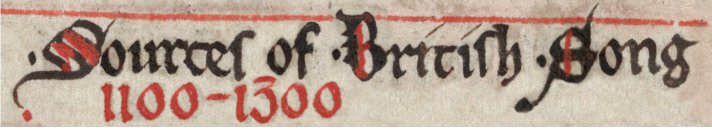 ·Sources of ·British ·Song
1100-1300